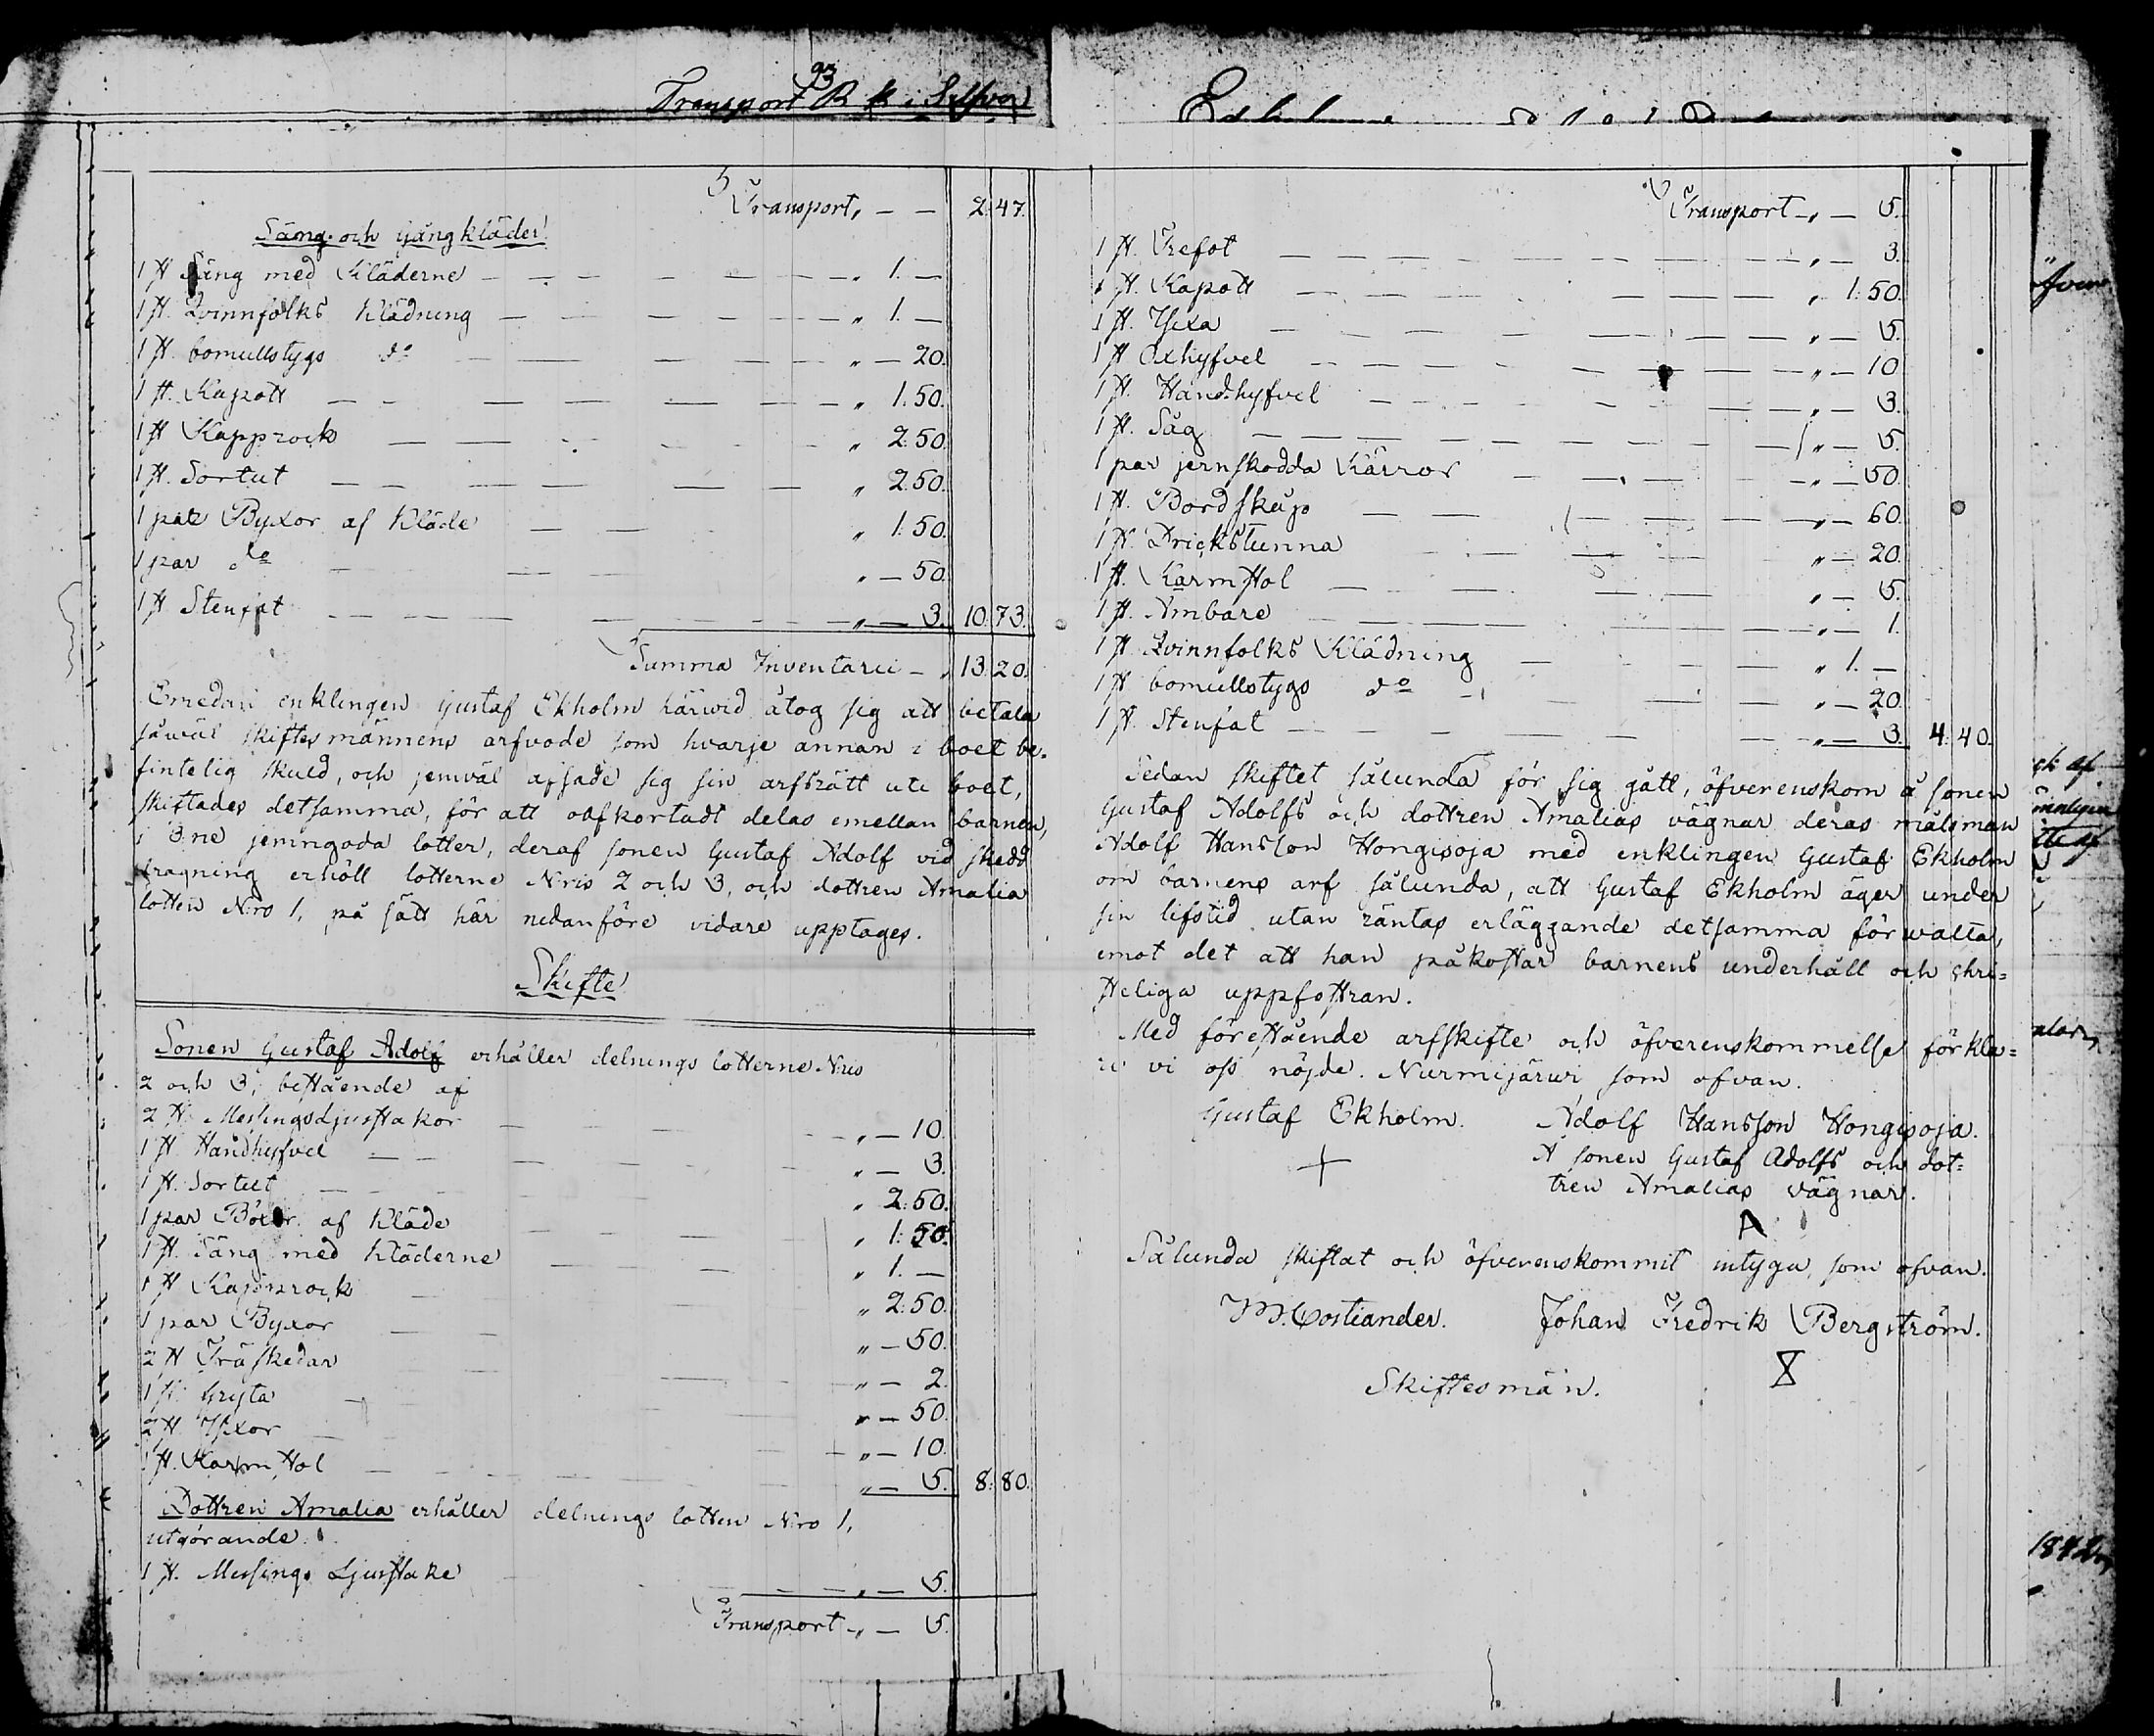 Transport R st i Silfver
Transport, — — 2. 47.
Säng- och Gångkläder
1 st Säng med Kläderne — „ 1. —
1 st. Qvinnfolks Klädning — „ 1. —
1 st. bomullstygs do — „ — 20.
1 st. Kapott — „ 1. 50.
1 st Kapprock — „ 2. 50.
1 st. Sortut — „ 2. 50.
1 par Byxor af Kläde — „ 1. 50.
1 par do — „ — 50.
1 st Stenfat — „ — 3. 10. 73.
Summa Inventarii — „ 13. 20.
Emedan enklingen Gustaf Ekholm härwid åtog sig att betala
såwäl skiftesmännens arfvode som hvarje annan i boet be-
fintelig skuld, och jemväl afsade sig sin arfsrätt uti boet,
skiftades detsamma, för att oafkortadt delas emellan barnen,
i 3ne jemngoda lotter, deraf sonen Gustaf Adolf vid skedd
dragning erhöll lotterne Nris 2 och 3, och dottren Amalia
lotten Nro 1, på sätt här nedanföre vidare upptages.
Skifte
Sonen Gustaf Adolf erhåller delnings lotterne Nris
2 och 3, bestående af
2 st. Messings Ljusstakor — „ — 10.
1 st. Handhyfvel — „ — 3.
1 st. Sortut — „ 2. 50.
1 par Böxor af Kläde — „ 1. 50.
1 st. Säng med Kläderne — „ 1. —
1 st Kapprock — „ 2. 50.
1 par Byxor — „ — 50.
2 st Träskedar — „ — 2.
1 st. Gryta — „ — 50.
2 st. Yxor — „ — 10.
1 st. Karmstol — „ — 5. 8. 80.
Dottren Amalia erhåller delnings lotten Nro 1,
utgörande.
1 st. Messings Ljusstake — „ — 5.
Transport — „ — 5.
Transport — „ — 5.
1 st. Trefot — „ — 3.
1 st. Kapott — „ 1. 50.
1 st. Yxa — „ — 5.
1 st Oxhyfvel — „ — 10
1 st. Handhyfvel — „ — 3.
1 st. Såg — „ — 5.
1 par jernskodda Kärror — „ — 50.
1 st. Bordskåp — „ — 60.
1 st. Drickstunna — „ — 20.
1 st. Karmstol — „ — 5.
1 st. Ämbare — „ — 1.
1 st. Qvinnfolks Klädning — „ 1. —
1 st bomullstygs do — „ — 20.
1 st. Stenfat — „ — 3. 4. 40.
Sedan skiftet sålunda för sig gått, öfverenskom å sonen
Gustaf Adolfs och dottren Amalias vägnar deras målsman
Adolf Hansson Hongisoja med enklingen Gustaf Ekholm
om barnens arf sålunda, att Gustaf Ekholm äger under
sin lifstid utan räntas erläggande detsamma förwalta,
emot det att han påkostar barnens underhåll och chri=
steliga uppfostran.
Med förestående arfskifte och öfverenskommelse förkla=
re vi oss nöjde. Nurmijärwi som ofvan.
Gustaf Ekholm. Adolf Hansson Hongisoja.
Å sonen Gustaf Adolfs och dot=
tren Amalias vägnar.
Sålunda skiftat och öfverenskommit intyga, som ofvan.
Costiander. Johan Fredrik Bergström.
Skiftesmän.